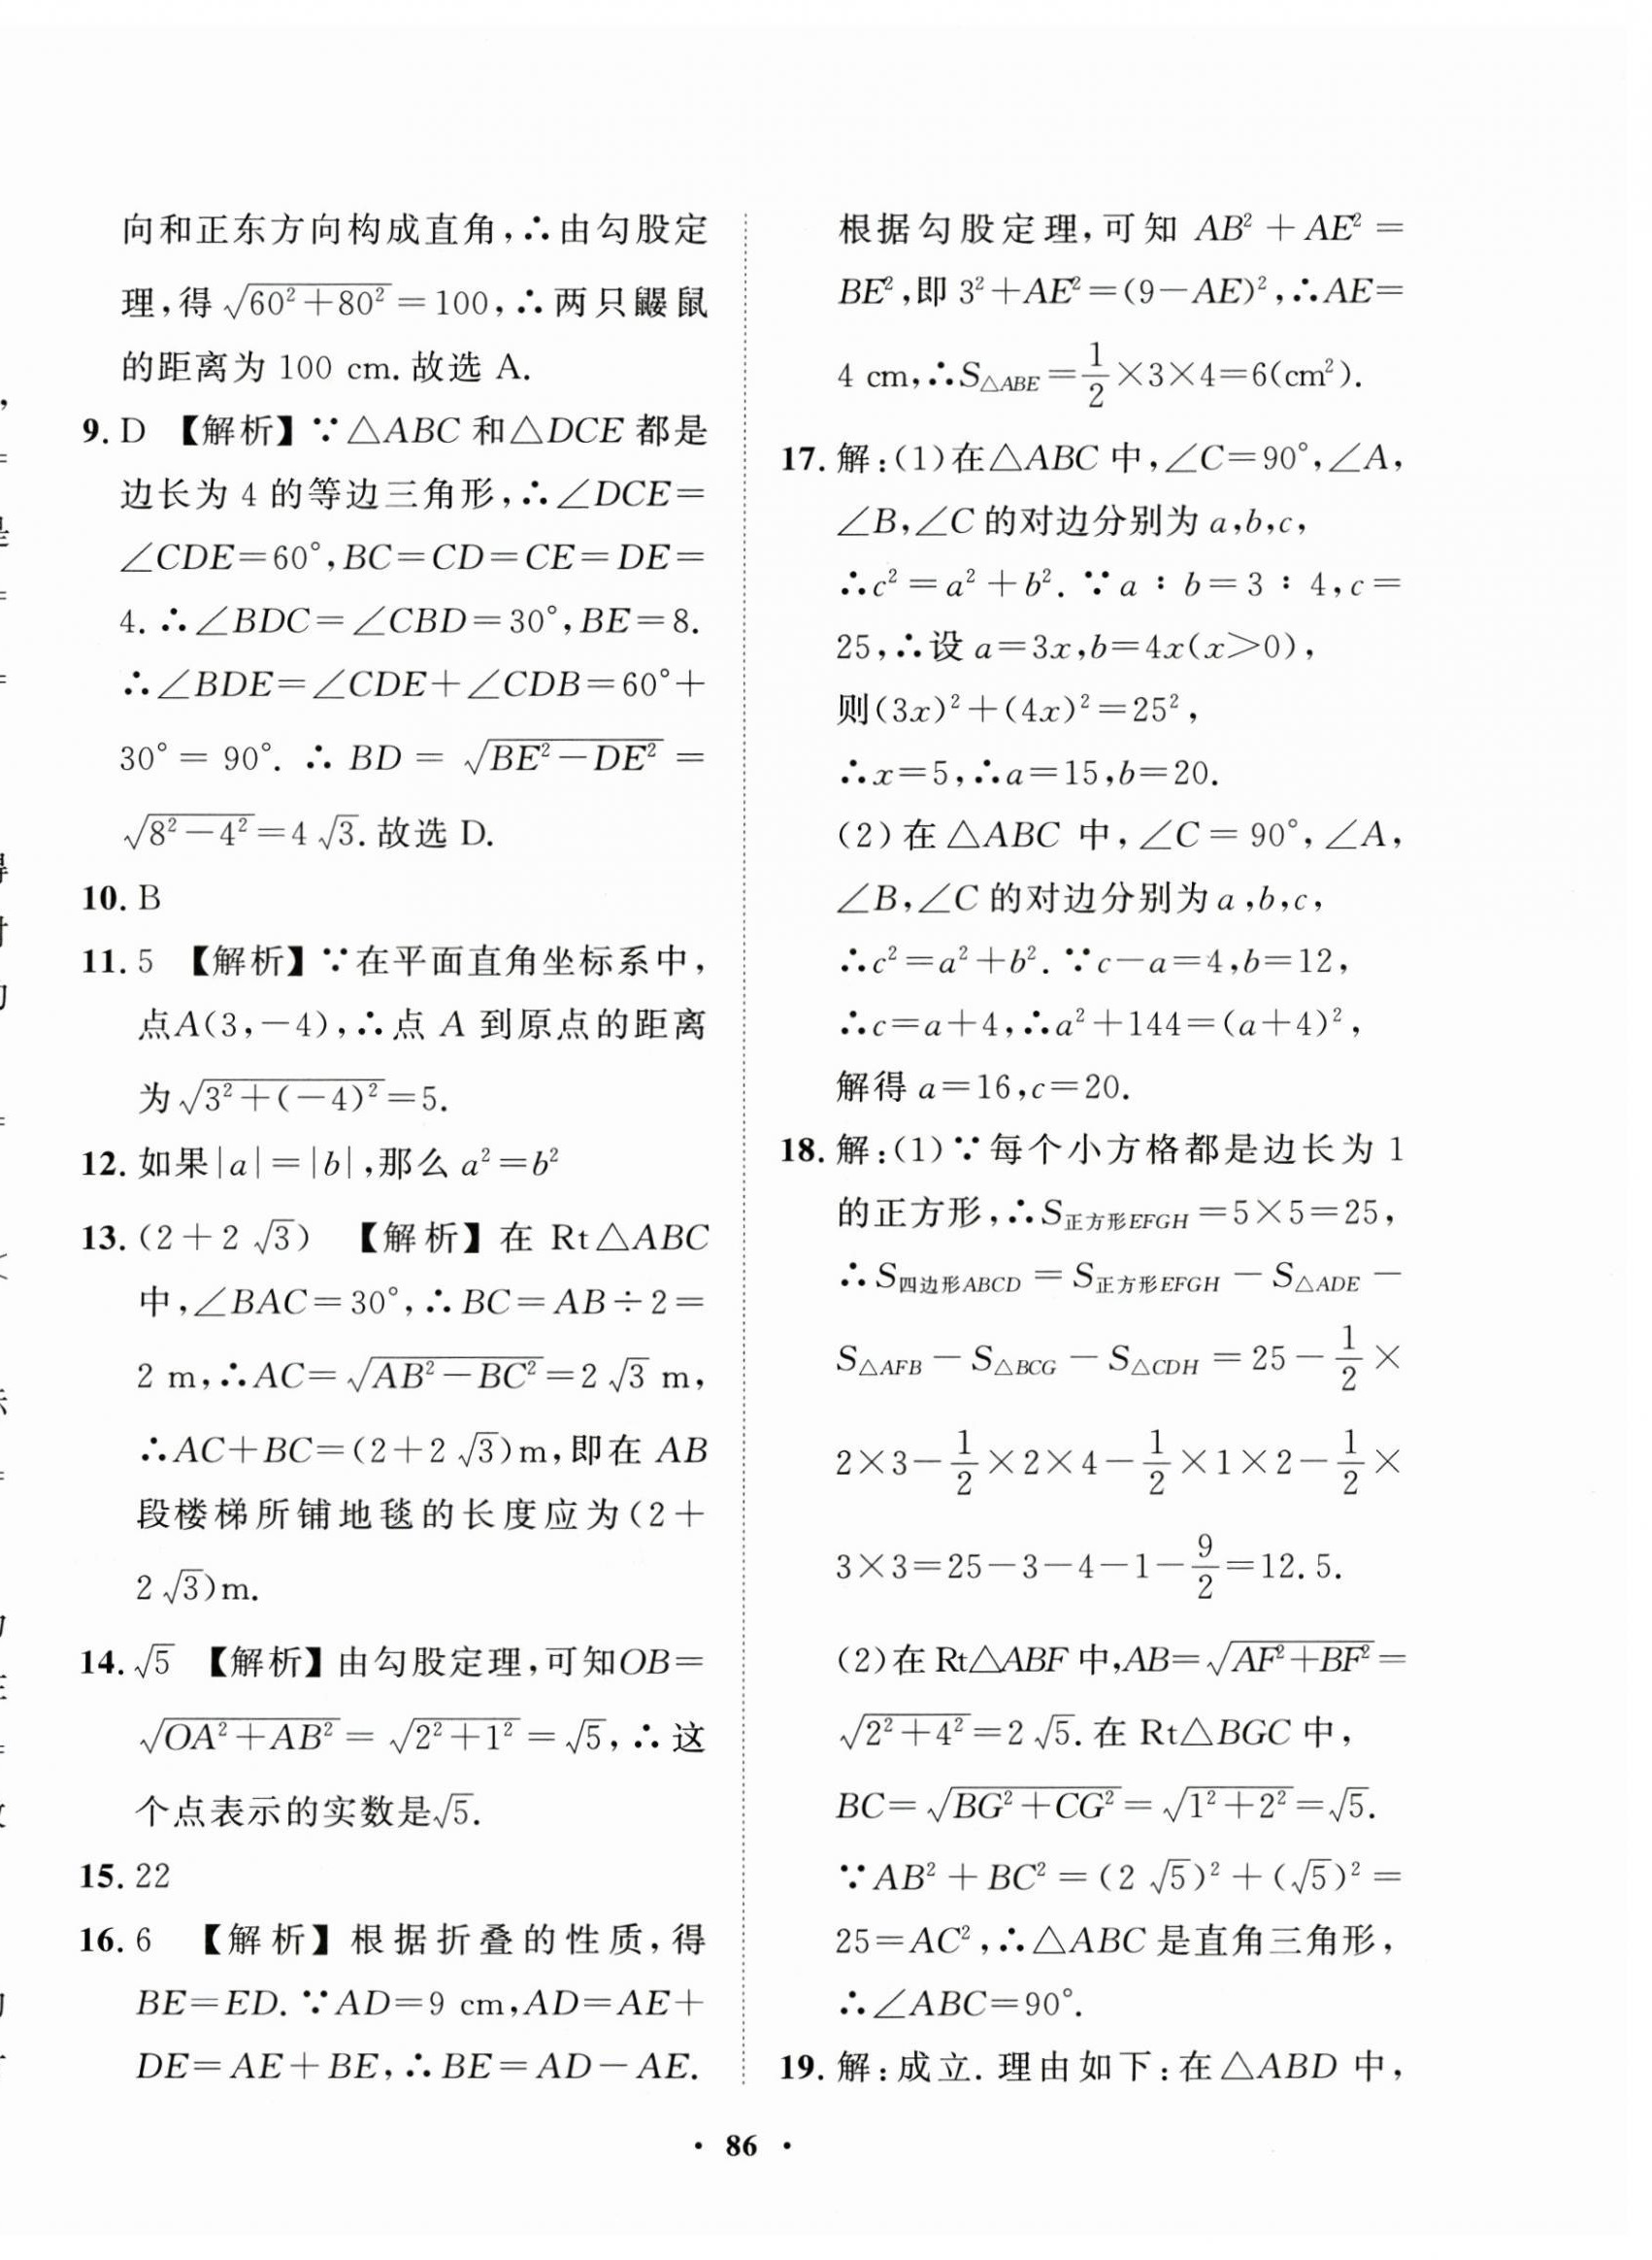 向和正东方向构成直角,∴由勾股定
理,得√(60²+80²)=100,∴两只鼹鼠
的距离为 100 cm. 故选 A.
9. D 【解析】∵△ABC 和△DCE 都是
边长为 4 的等边三角形,∴∠DCE=
∠CDE=60°,BC=CD=CE=DE=
4. ∴∠BDC=∠CBD=30°,BE=8.
∴∠BDE=∠CDE+∠CDB=60°+
30° = 90°. ∴ BD = √(BE²-DE²) =
√(8²-4²)=4√3. 故选 D.
10. B
11. 5 【解析】∵在平面直角坐标系中,
点A(3,-4),∴点 A 到原点的距离
为√(3²+(-4)²)=5.
12. 如果|a|=|b|,那么 a²=b²
13. (2+2√3) 【解析】在 Rt△ABC
中,∠BAC=30°,∴BC=AB÷2=
2 m,∴AC=√(AB²-BC²)=2√3 m,
∴AC+BC=(2+2√3)m,即在 AB
段楼梯所铺地毯的长度应为(2+
2√3)m.
14. √5 【解析】由勾股定理,可知OB=
√(OA²+AB²)=√(2²+1²)=√5,∴这
个点表示的实数是√5.
15. 22
16. 6 【解析】根据折叠的性质,得
BE=ED. ∵AD=9 cm,AD=AE+
DE=AE+BE,∴BE=AD-AE.
根据勾股定理,可知 AB²+AE²=
BE²,即 3²+AE²=(9-AE)²,∴AE=
4 cm,∴S△ABE=1/2×3×4=6(cm²).
17. 解:(1)在△ABC 中,∠C=90°,∠A,
∠B,∠C 的对边分别为 a,b,c,
∴c²=a²+b². ∵a:b=3:4,c=
25,∴设 a=3x,b=4x(x>0),
则(3x)²+(4x)²=25²,
∴x=5,∴a=15,b=20.
(2)在△ABC 中,∠C=90°,∠A,
∠B,∠C 的对边分别为 a,b,c,
∴c²=a²+b². ∵c-a=4,b=12,
∴c=a+4,∴a²+144=(a+4)²,
解得 a=16,c=20.
18. 解:(1)∵每个小方格都是边长为 1
的正方形,∴S正方形EFGH=5×5=25,
∴S四边形ABCD=S正方形EFGH-S△ADE-
S△AFB-S△BCG-S△CDH=25-1/2×
2×3-1/2×2×4-1/2×1×2-1/2×
3×3=25-3-4-1-9/2=12.5.
(2)在 Rt△ABF 中,AB=√(AF²+BF²)=
√(2²+4²)=2√5. 在 Rt△BGC 中,
BC=√(BG²+CG²)=√(1²+2²)=√5.
∵AB²+BC²=(2√5)²+(√5)²=
25=AC²,∴△ABC 是直角三角形,
∴∠ABC=90°.
19. 解:成立. 理由如下:在△ABD 中,
· 86 ·